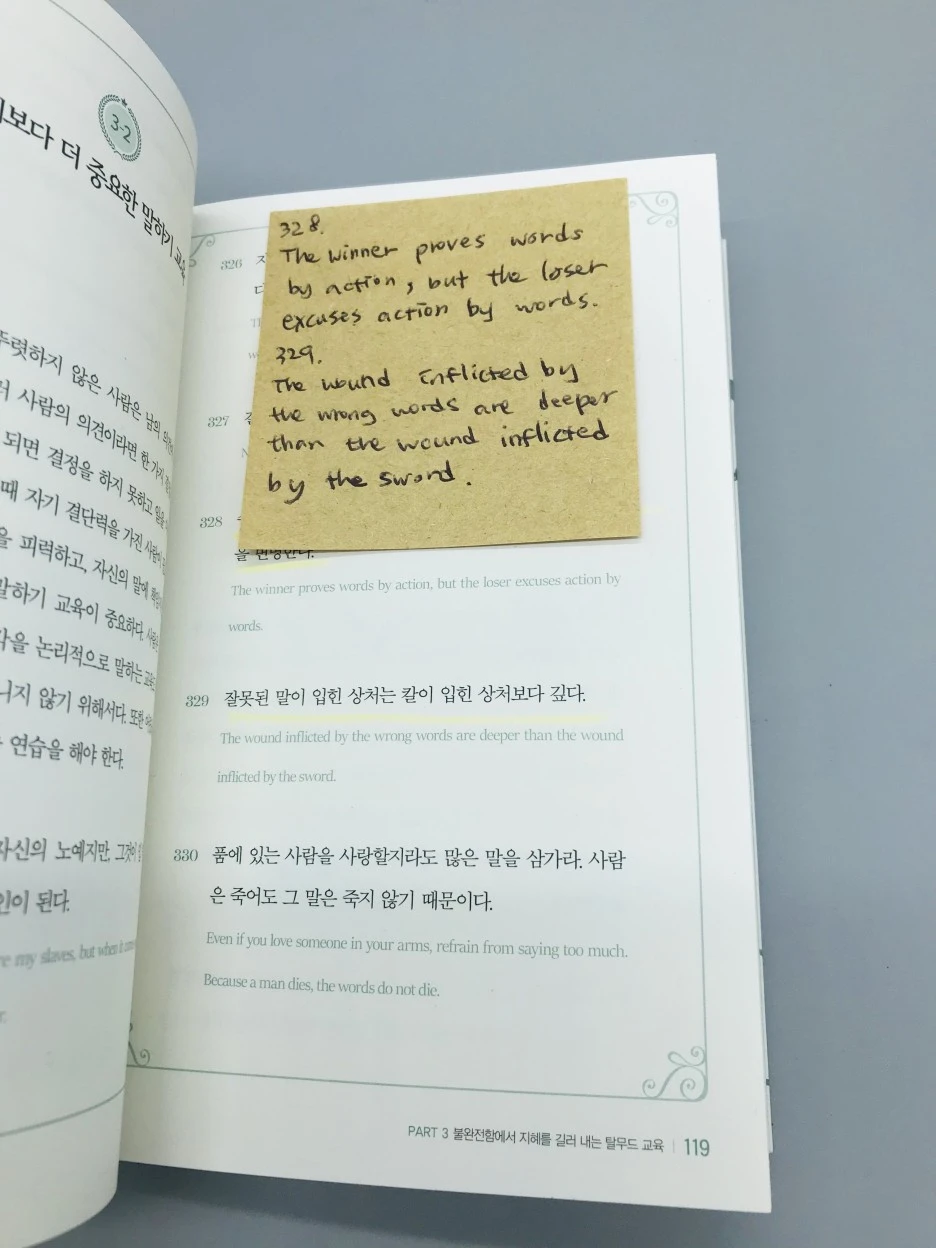 3-2
보다 더 중요한 말하기 교육
뚜렷하지 않은 사람은 남의
사람의 의견이라면 한 가지
되면 결정을 하지 못하고 일을
때 자기 결단력을 가진 사람이
을 피력하고, 자신의 말에
말하기 교육이 중요하다.
각을 논리적으로 말하는
니지 않기 위해서다. 또한
연습을 해야 한다.
자신의 노예지만, 그것이
인이 된다.
re my slaves, but when it
r.
326
327
328.
The winner proves words
by action, but the loser
excuses action by words.
329.
The wound inflicted by
the wrong words are deeper
than the wound inflicted
by the sword.
328
을 변명한다.
The winner proves words by action, but the loser excuses action by
words.
329 잘못된 말이 입힌 상처는 칼이 입힌 상처보다 깊다.
The wound inflicted by the wrong words are deeper than the wound
inflicted by the sword.
330 품에 있는 사람을 사랑할지라도 많은 말을 삼가라. 사람
은 죽어도 그 말은 죽지 않기 때문이다.
Even if you love someone in your arms, refrain from saying too much.
Because a man dies, the words do not die.
PART 3 불완전함에서 지혜를 길러 내는 탈무드 교육 | 119